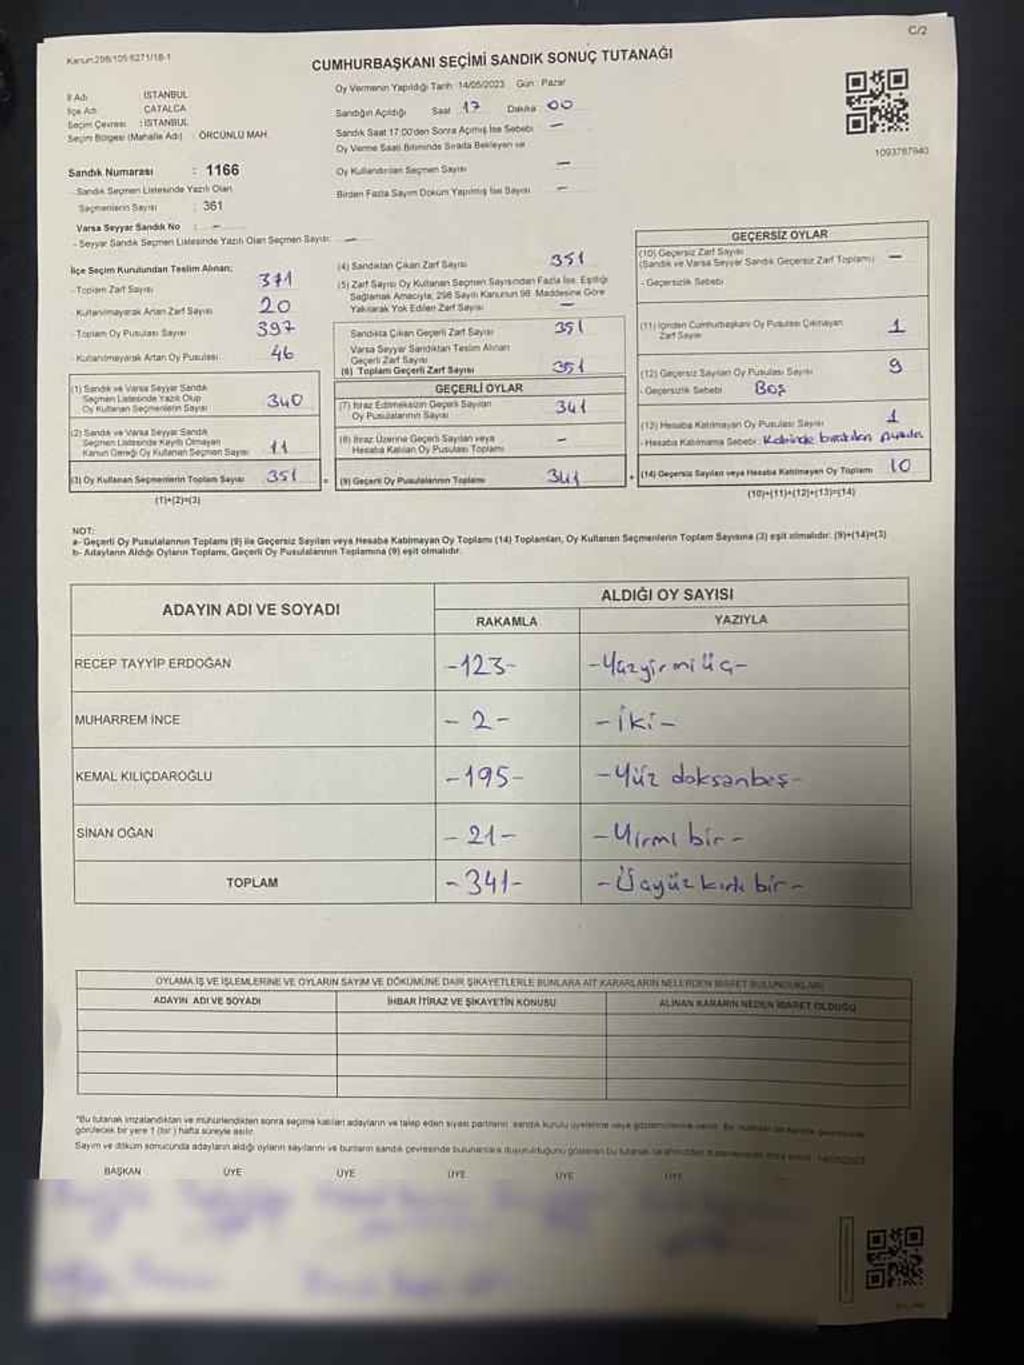 C/2
Kanun:298/105 6271/18-1
CUMHURBAŞKANI SEÇİMİ SANDIK SONUÇ TUTANAĞI
İl Adı : İSTANBUL
İlçe Adı : ÇATALCA
Seçim Çevresi : İSTANBUL
Seçim Bölgesi (Mahalle Adı) : ÖRCÜNLÜ MAH.
Sandık Numarası : 1166
- Sandık Seçmen Listesinde Yazılı Olan
Seçmenlerin Sayısı : 361
Varsa Seyyar Sandık No : -
- Seyyar Sandık Seçmen Listesinde Yazılı Olan Seçmen Sayısı: -
Oy Vermenin Yapıldığı Tarih :14/05/2023 Gün : Pazar
Sandığın Açıldığı Saat : 17 Dakika : 00
Sandık Saat 17:00'den Sonra Açılmış İse Sebebi : -
Oy Verme Saati Bitiminde Sırada Bekleyen ve
Oy Kullandırılan Seçmen Sayısı : -
Birden Fazla Sayım Döküm Yapılmış İse Sayısı : -
1093787940
İlçe Seçim Kurulundan Teslim Alınan;
- Toplam Zarf Sayısı : 371
- Kullanılmayarak Artan Zarf Sayısı : 20
- Toplam Oy Pusulası Sayısı : 397
- Kullanılmayarak Artan Oy Pusulası : 46
(1) Sandık ve Varsa Seyyar Sandık
Seçmen Listesinde Yazılı Olup
Oy Kullanan Seçmenlerin Sayısı 340
(2) Sandık ve Varsa Seyyar Sandık
Seçmen Listesinde Kayıtlı Olmayan
Kanun Gereği Oy Kullanan Seçmen Sayısı 11
(3) Oy Kullanan Seçmenlerin Toplam Sayısı 351
(1)+(2)=(3)
(4) Sandıktan Çıkan Zarf Sayısı 351
(5) Zarf Sayısı Oy Kullanan Seçmen Sayısından Fazla İse, Eşitliği
Sağlamak Amacıyla, 298 Sayılı Kanunun 98. Maddesine Göre
Yakılarak Yok Edilen Zarf Sayısı -
Sandıkta Çıkan Geçerli Zarf Sayısı 351
Varsa Seyyar Sandıktan Teslim Alınan
Geçerli Zarf Sayısı
(6) Toplam Geçerli Zarf Sayısı 351
GEÇERLİ OYLAR
(7) İtiraz Edilmeksizin Geçerli Sayılan
Oy Pusulalarının Sayısı 341
(8) İtiraz Üzerine Geçerli Sayılan veya
Hesaba Katılan Oy Pusulası Toplamı -
= (9) Geçerli Oy Pusulalarının Toplamı 341
GEÇERSİZ OYLAR
(10) Geçersiz Zarf Sayısı
(Sandık ve Varsa Seyyar Sandık Geçersiz Zarf Toplamı) -
- Geçersizlik Sebebi :
(11) İçinden Cumhurbaşkanı Oy Pusulası Çıkmayan
Zarf Sayısı 1
(12) Geçersiz Sayılan Oy Pusulası Sayısı 9
- Geçersizlik Sebebi : Boş
(13) Hesaba Katılmayan Oy Pusulası Sayısı 1
- Hesaba Katılmama Sebebi : Kabinde bırakılan
+ (14) Geçersiz Sayılan veya Hesaba Katılmayan Oy Toplamı 10
(10)+(11)+(12)+(13)=(14)
NOT:
a- Geçerli Oy Pusulalarının Toplamı (9) ile Geçersiz Sayılan veya Hesaba Katılmayan Oy Toplamı (14) Toplamları, Oy Kullanan Seçmenlerin Toplam Sayısına (3) eşit olmalıdır. (9)+(14)=(3)
b- Adayların Aldığı Oyların Toplamı, Geçerli Oy Pusulalarının Toplamına (9) eşit olmalıdır.
ADAYIN ADI VE SOYADI ALDIĞI OY SAYISI
RAKAMLA YAZIYLA
RECEP TAYYİP ERDOĞAN -123- -Yüzyirmi üç-
MUHARREM İNCE -2- -İki-
KEMAL KILIÇDAROĞLU -195- -Yüz doksanbeş-
SİNAN OĞAN -21- -Yirmi bir-
TOPLAM -341- -Üçyüz kırk bir-
OYLAMA İŞ VE İŞLEMLERİNE VE OYLARIN SAYIM VE DÖKÜMÜNE DAİR ŞİKAYETLERLE BUNLARA AİT KARARLARIN NELERDEN İBARET BULUNDUKLARI
ADAYIN ADI VE SOYADI İHBAR İTİRAZ VE ŞİKAYETİN KONUSU ALINAN KARARIN NEDEN İBARET OLDUĞU
*Bu tutanak imzalandıktan ve mühürlendikten sonra seçime katılan adayların ve talep eden siyasi partilerin, sandık kurulu üyelerine veya gözlemcilerine verilir.
görülecek bir yere 1 (bir) hafta süreyle asılır.
Sayım ve döküm sonucunda adayların aldığı oyların sayılarını ve bunların sandık çevresinde bulunanlara duyurulduğunu gösteren bu tutanak
BAŞKAN ÜYE ÜYE ÜYE ÜYE ÜYE